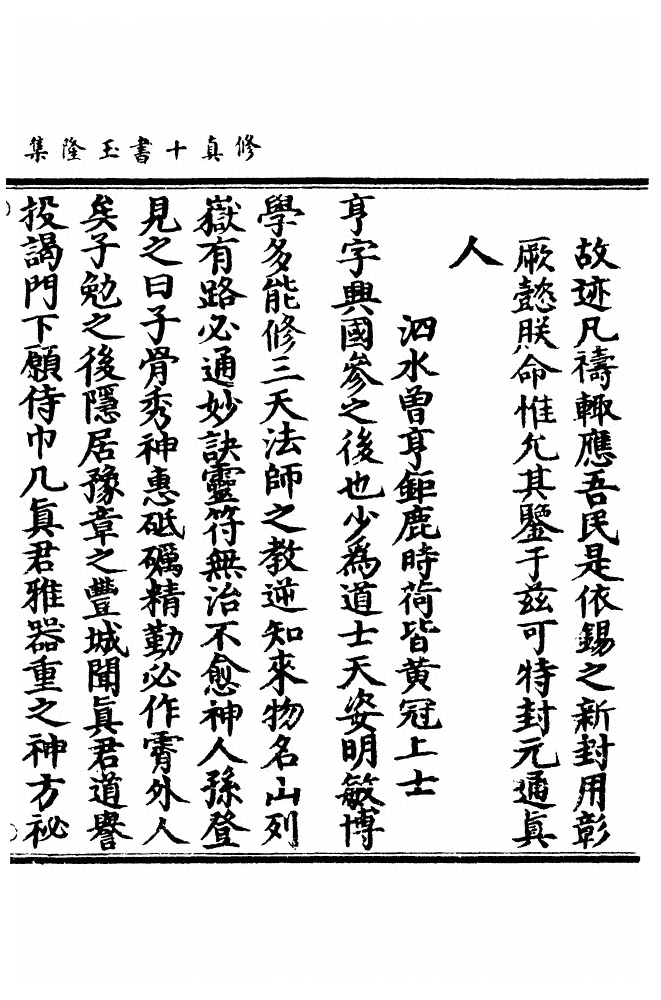 修真十書玉隆集
故迹凡禱輙應吾民是依錫之新封用彰
厥懿朕命惟允其鑒于兹可特封元通眞
人
泗水曾亨鉅鹿時荷皆黄冠上士
亨字興國參之後也少為道士天姿明敏博
學多能修三天法師之教逆知來物名山列
嶽有路必通妙訣靈符無治不愈神人孫登
見之曰子骨秀神惠砥礪精勤必作霄外人
矣子勉之後隱居豫章之豐城聞眞君道譽
投謁門下願侍巾几眞君雅器重之神方祕